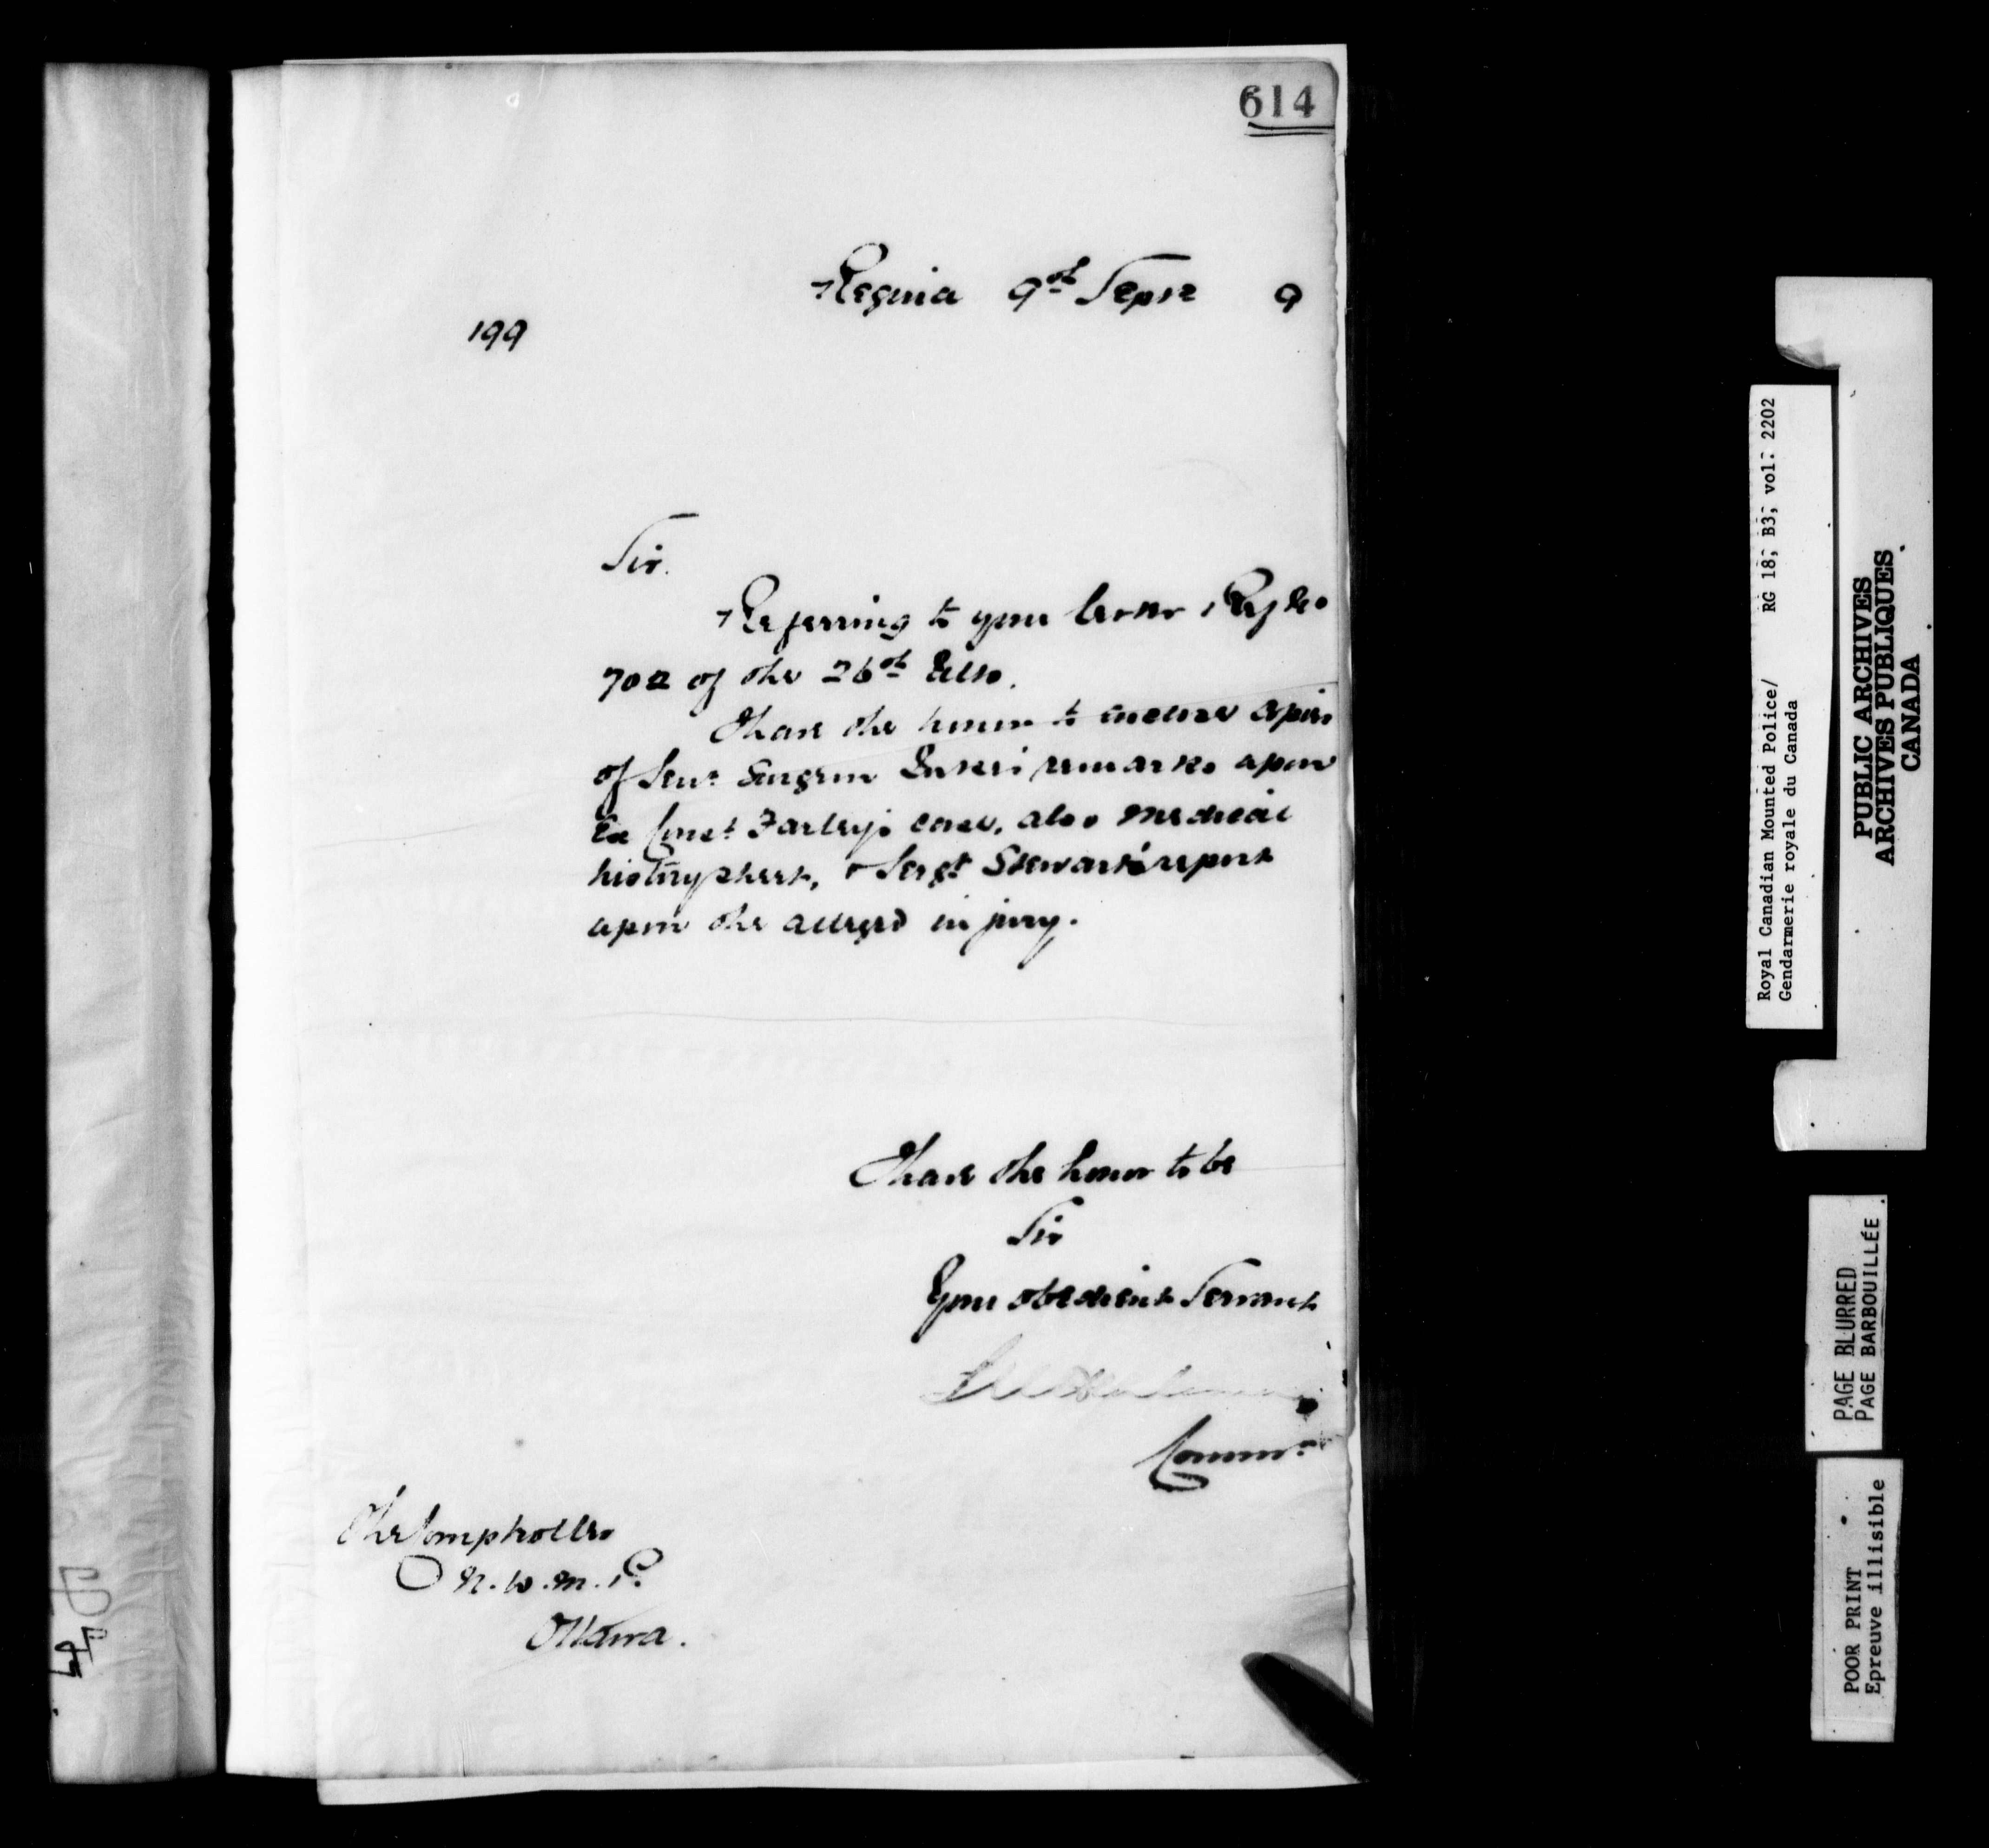 614
Regina 9th Sept 9
199
Sir.
Referring to your letter
702 of the 26th Ulto.
I have the honor to enclose copies
of Senr Surgeon remarks upon
Ex Const Farley's case, also medical
history sheet, & Sergt Stewart's report
upon the alleged injury.
I have the honor to be
Sir
Your obedient Servant
Commr
The Comptroller
N.W.M.P.
Ottawa.
Royal Canadian Mounted Police/ RG 18, B3, vol. 2202
Gendarmerie royale du Canada
PUBLIC ARCHIVES
ARCHIVES PUBLIQUES
CANADA
PAGE BLURRED
PAGE BARBOUILLÉE
POOR PRINT
Epreuve illisible